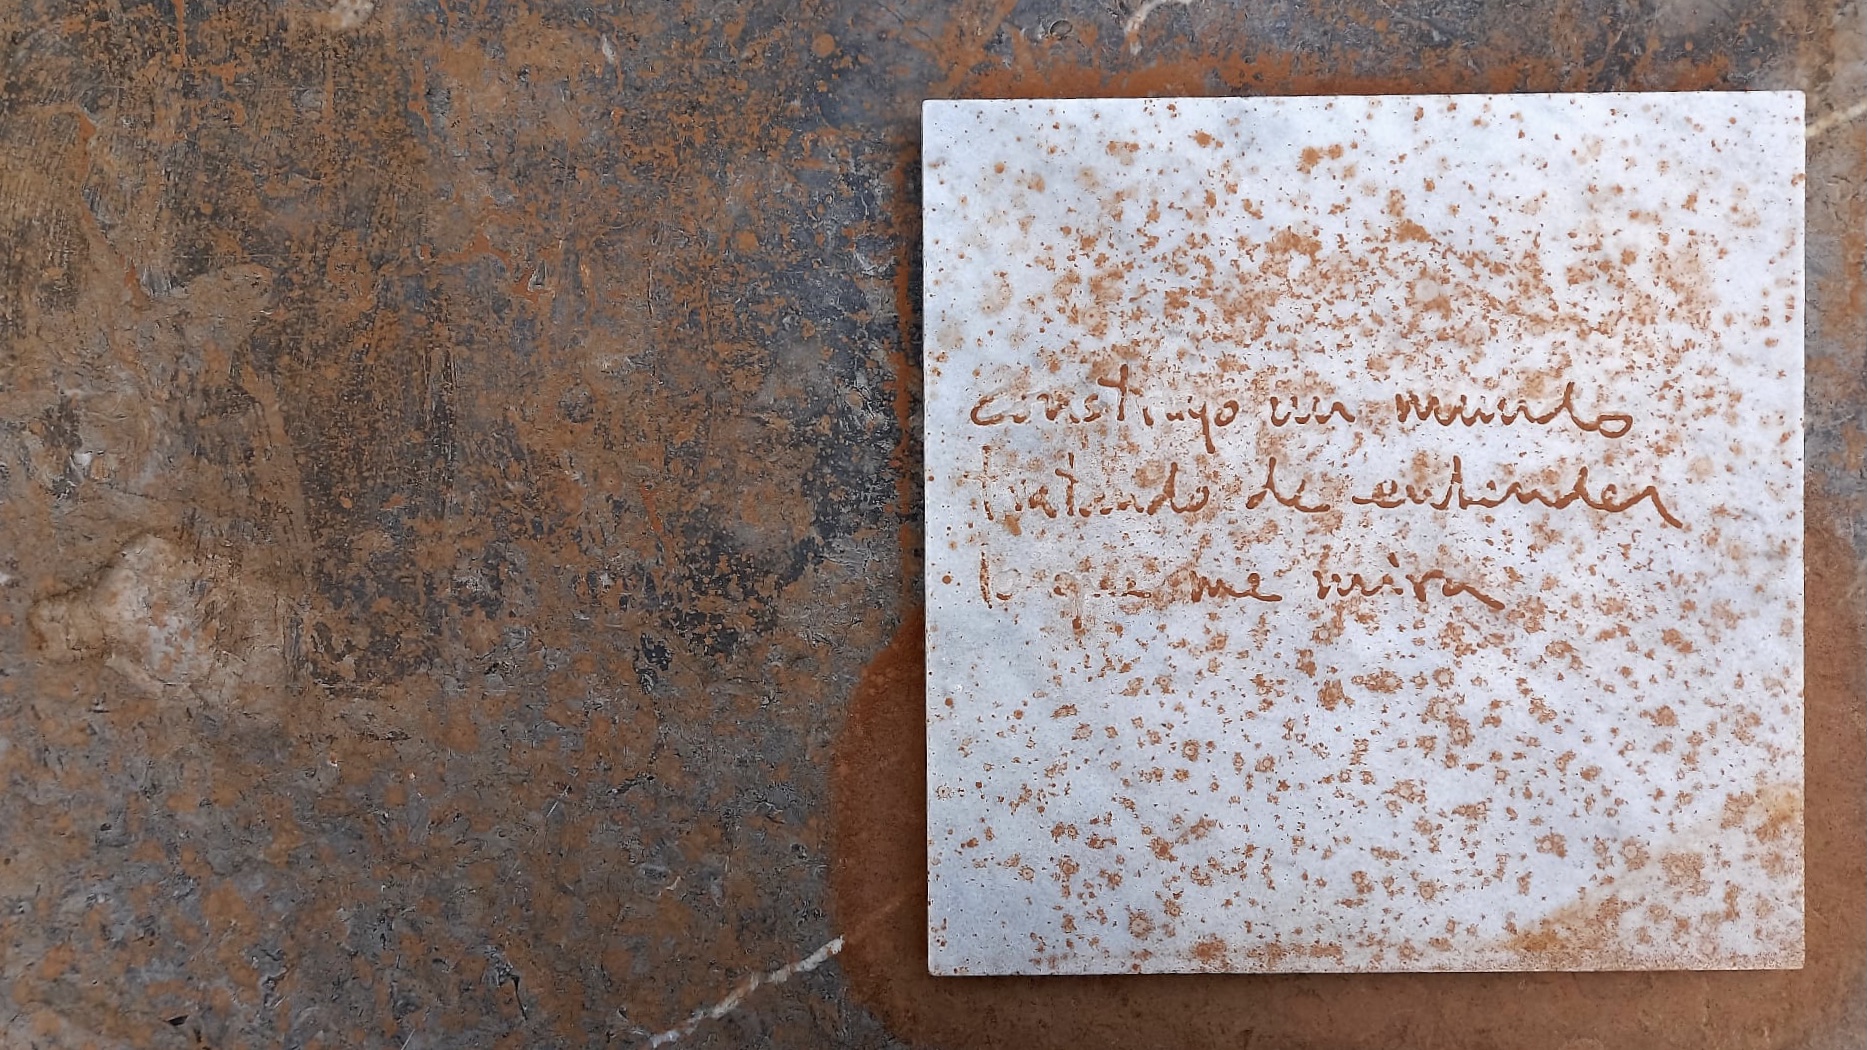 construyo un mundo
tratando de entender
lo que me mira